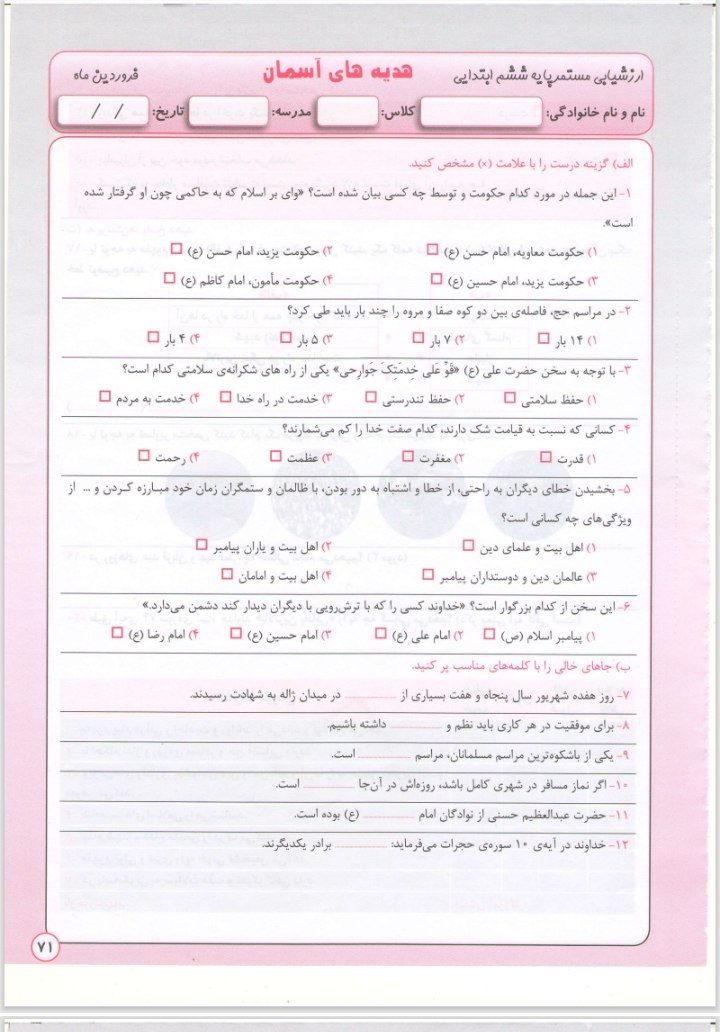 ارزشیابی مستمر پایه ششم ابتدایی هدیه های آسمان فروردین ماه
نام و نام خانوادگی: کلاس: مدرسه: تاریخ: / /
الف) گزینه درست را با علامت (×) مشخص کنید.
۱- این جمله در مورد کدام حکومت و توسط چه کسی بیان شده است؟ «وای بر اسلام که به حاکمی چون او گرفتار شده
است».
۱) حکومت معاویه، امام حسن (ع) ۲) حکومت یزید، امام حسن (ع)
۳) حکومت یزید، امام حسین (ع) ۴) حکومت مأمون، امام کاظم (ع)
۲- در مراسم حج، فاصله‌ی بین دو کوه صفا و مروه را چند بار باید طی کرد؟
۱) ۱۴ بار ۲) ۷ بار ۳) ۵ بار ۴) ۴ بار
۳- با توجه به سخن حضرت علی (ع) «قَوِّ عَلی خِدمَتِکَ جَوارِحی» یکی از راه های شکرانه‌ی سلامتی کدام است؟
۱) حفظ سلامتی ۲) حفظ تندرستی ۳) خدمت در راه خدا ۴) خدمت به مردم
۴- کسانی که نسبت به قیامت شک دارند، کدام صفت خدا را کم می‌شمارند؟
۱) قدرت ۲) مغفرت ۳) عظمت ۴) رحمت
۵- بخشیدن خطای دیگران به راحتی، از خطا و اشتباه به دور بودن، با ظالمان و ستمگران زمان خود مبارزه کردن و ... از
ویژگی‌های چه کسانی است؟
۱) اهل بیت و علمای دین ۲) اهل بیت و یاران پیامبر
۳) عالمان دین و دوستداران پیامبر ۴) اهل بیت و امامان
۶- این سخن از کدام بزرگوار است؟ «خداوند کسی را که با ترش‌رویی با دیگران دیدار کند دشمن می‌دارد.»
۱) پیامبر اسلام (ص) ۲) امام علی (ع) ۳) امام حسین (ع) ۴) امام رضا (ع)
ب) جاهای خالی را با کلمه‌های مناسب پر کنید.
۷- روز هفده شهریور سال پنجاه و هفت بسیاری از ________ در میدان ژاله به شهادت رسیدند.
۸- برای موفقیت در هر کاری باید نظم و ________ داشته باشیم.
۹- یکی از باشکوه‌ترین مراسم مسلمانان، مراسم ________ است.
۱۰- اگر نماز مسافر در شهری کامل باشد، روزه‌اش در آن‌جا ________ است.
۱۱- حضرت عبدالعظیم حسنی از نوادگان امام ________ (ع) بوده است.
۱۲- خداوند در آیه‌ی ۱۰ سوره‌ی حجرات می‌فرماید: ________ برادر یکدیگرند.
۷۱